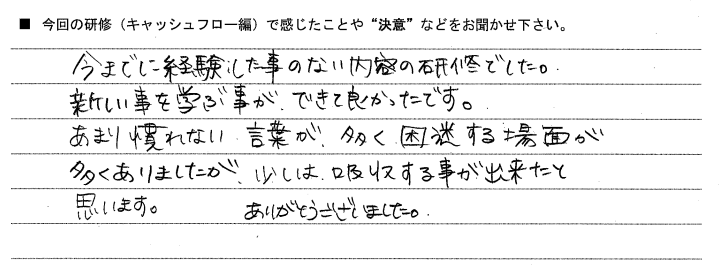 ■ 今回の研修（キャッシュフロー編）で感じたことや“決意”などをお聞かせ下さい。
今までに経験した事のない内容の研修でした。
新しい事を学ぶ事が、できて良かったです。
あまり慣れない 言葉が、多く 困迷する場面が
多くありましたが、少しは、吸収する事が出来たと
思います。 ありがとうございました。